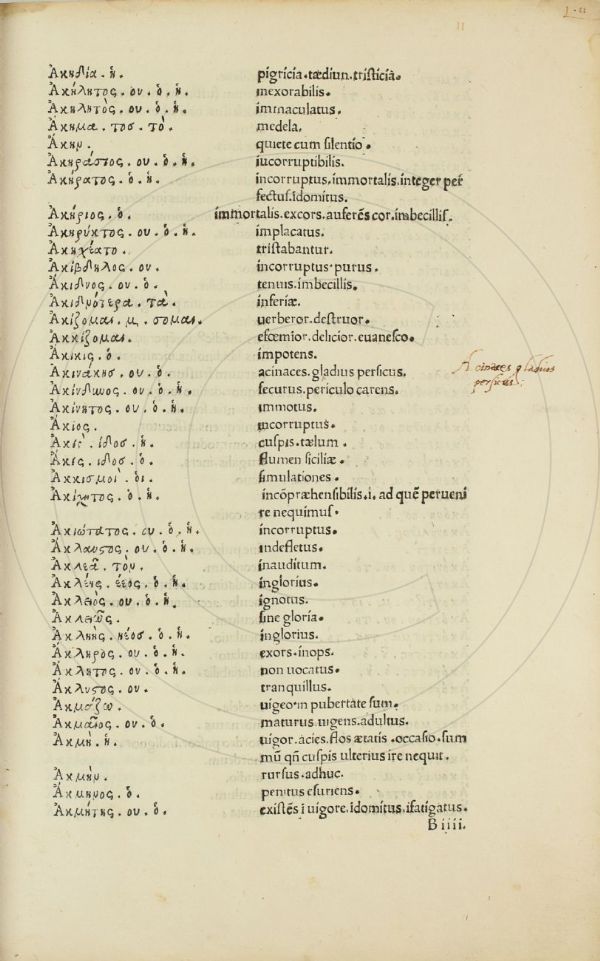 11
Ἀκηδία. ἡ. pigricia. tædiun. tristicia.
Ἀκήλητος. ου. ὁ. ἡ. inexorabilis.
Ἀκηλητὸς. ου. ὁ. ἡ. immaculatus.
Ἄκημα. τος. τὸ. medela.
Ἀκην. quiete cum silentio.
Ἀκηράστος. ου. ὁ. ἡ. iucorruptibilis.
Ἀκήρατος. ὁ. ἡ. incorruptus. immortalis. integer per
fectus. idomitus.
Ἀκήριος. ὁ. immortalis. excors. auferēs cor. imbecillis.
Ἀκηρύκτος. ου. ὁ. ἡ. implacatus.
Ἀκηχέατο. tristabantur.
Ἀκίβδηλος. ου. incorruptus. purus.
Ἀκιδνος. ου. ὁ. tenuis. imbecillis.
Ἀκιδνότερα. τὰ. inferiæ.
Ἀκίζομαι. μ. σομαι. uerberor. destruor.
Ἀκκίζομαι. efœmior. delicior. euanesco.
Ἄκικις. ὁ. impotens.
Ἀκινάκης. ου. ὁ. acinaces. gladius persicus.
Acinaces gladius
persicus.
Ἀκίνδυνος. ου. ὁ. ἡ. securus. periculo carens.
Ἀκίνητος. ου. ὁ. ἡ. immotus.
Ἄκιος. incorruptus.
Ἀκις. ιδοσ. ἡ. cuspis. tælum.
Ἄκις. ιδοσ. ὁ. flumen siciliæ.
Ἀκκισμοὶ. ὁι. simulationes.
Ἀκίχητος. ὁ. ἡ. incōpræhensibilis. i. ad quē perueni
re nequimus.
Ἀκιώτατος. ου. ὁ. ἡ. incorruptus.
Ἄκλαυστος. ου. ὁ. ἡ. indefletus.
Ἀκλεᾶ. τὸν. inauditum.
Ἀκλέης. έεος. ὁ. ἡ. inglorius.
Ἀκλεὸς. ου. ὁ. ἡ. ignotus.
Ἀκλεῶς. sine gloria.
Ἀκλης. ηέοσ. ὁ. ἡ. inglorius.
Ἄκληρος. ου. ὁ. ἡ. exors. inops.
Ἄκλητος. ου. ὁ. ἡ. non uocatus.
Ἄκλυστος. ου. tranquillus.
Ἀκμάζω. uigeo. in pubertate sum.
Ἀκμαῖος. ου. ὁ. maturus. uigens. adultus.
Ἀκμὴ. ἡ. uigor. acies. flos ætatis. occasio. sum
mū qñ cuspis ulterius ire nequit.
Ἀκμὴν. rursus. adhuc.
Ἄκμηνος. ὁ. penitus esuriens.
Ἀκμήτης. ου. ὁ. existēs ī uigore. īdomitus. ifatigatus.
B iiii.